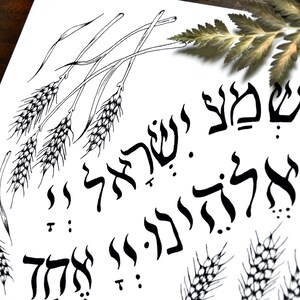 שְׁמַע יִשְׂרָאֵל יְיָ
אֱלֹהֵינוּ יְיָ אֶחָד